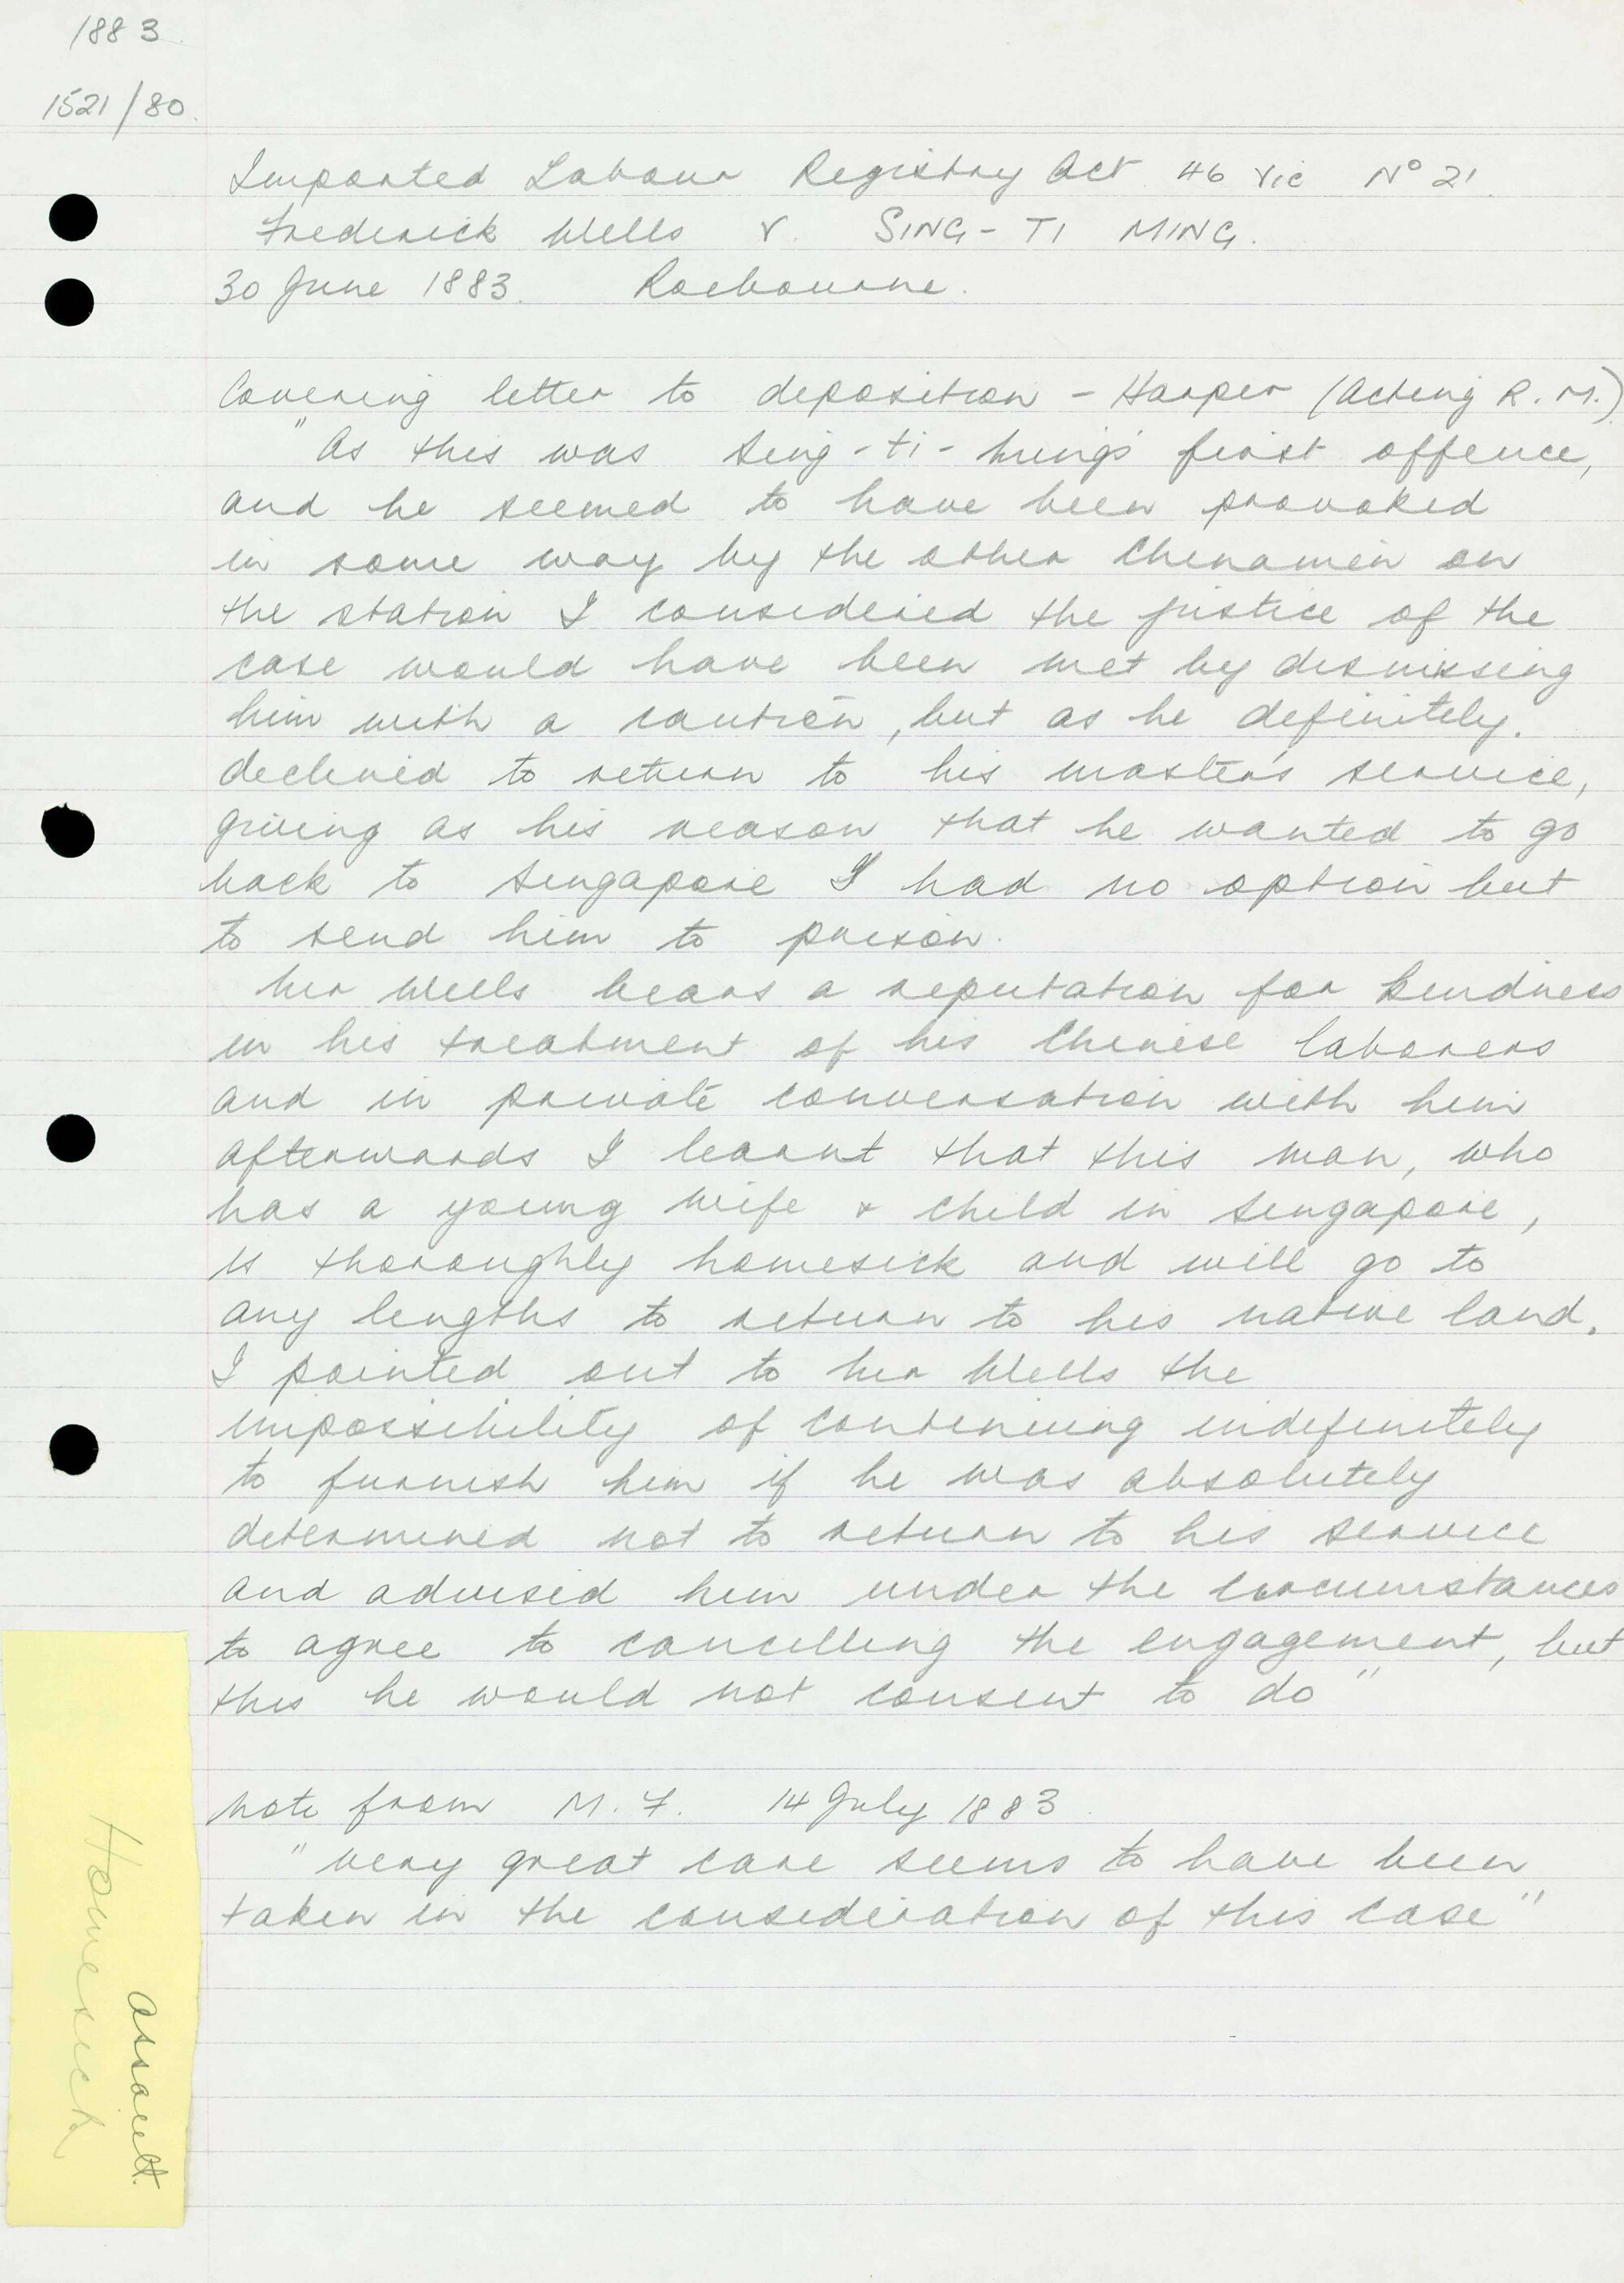 1883
1521/80.
Imported Labour Registry Act 46 Vic Nº 21.
Frederick Wells v. SING-TI MING.
30 June 1883. Roebourne.
Covering letter to deposition - Harper (Acting R.M.)
"As this was Sing-ti-Ming's first offence,
and he seemed to have been provoked
in some way by the other Chinamen on
the station I considered the justice of the
case would have been met by dismissing
him with a caution, but as he definitely.
declined to return to his master's service,
giving as his reason that he wanted to go
back to Singapore I had no option but
to send him to prison.
Mr Wells bears a reputation for kindness
in his treatment of his Chinese laborers
and in private conversation with him
afterwards I learnt that this man, who
has a young wife & child in Singapore,
is thoroughly homesick and will go to
any lengths to return to his native land.
I pointed out to Mr Wells the
impossibility of continuing indefinitely
to furnish him if he was absolutely
determined not to return to his service
and advised him under the circumstances
to agree to cancelling the engagement, but
this he would not consent to do"
Note from M.F. 14 July 1883.
"Very great care seems to have been
taken in the consideration of this case"
assault.
Homesick